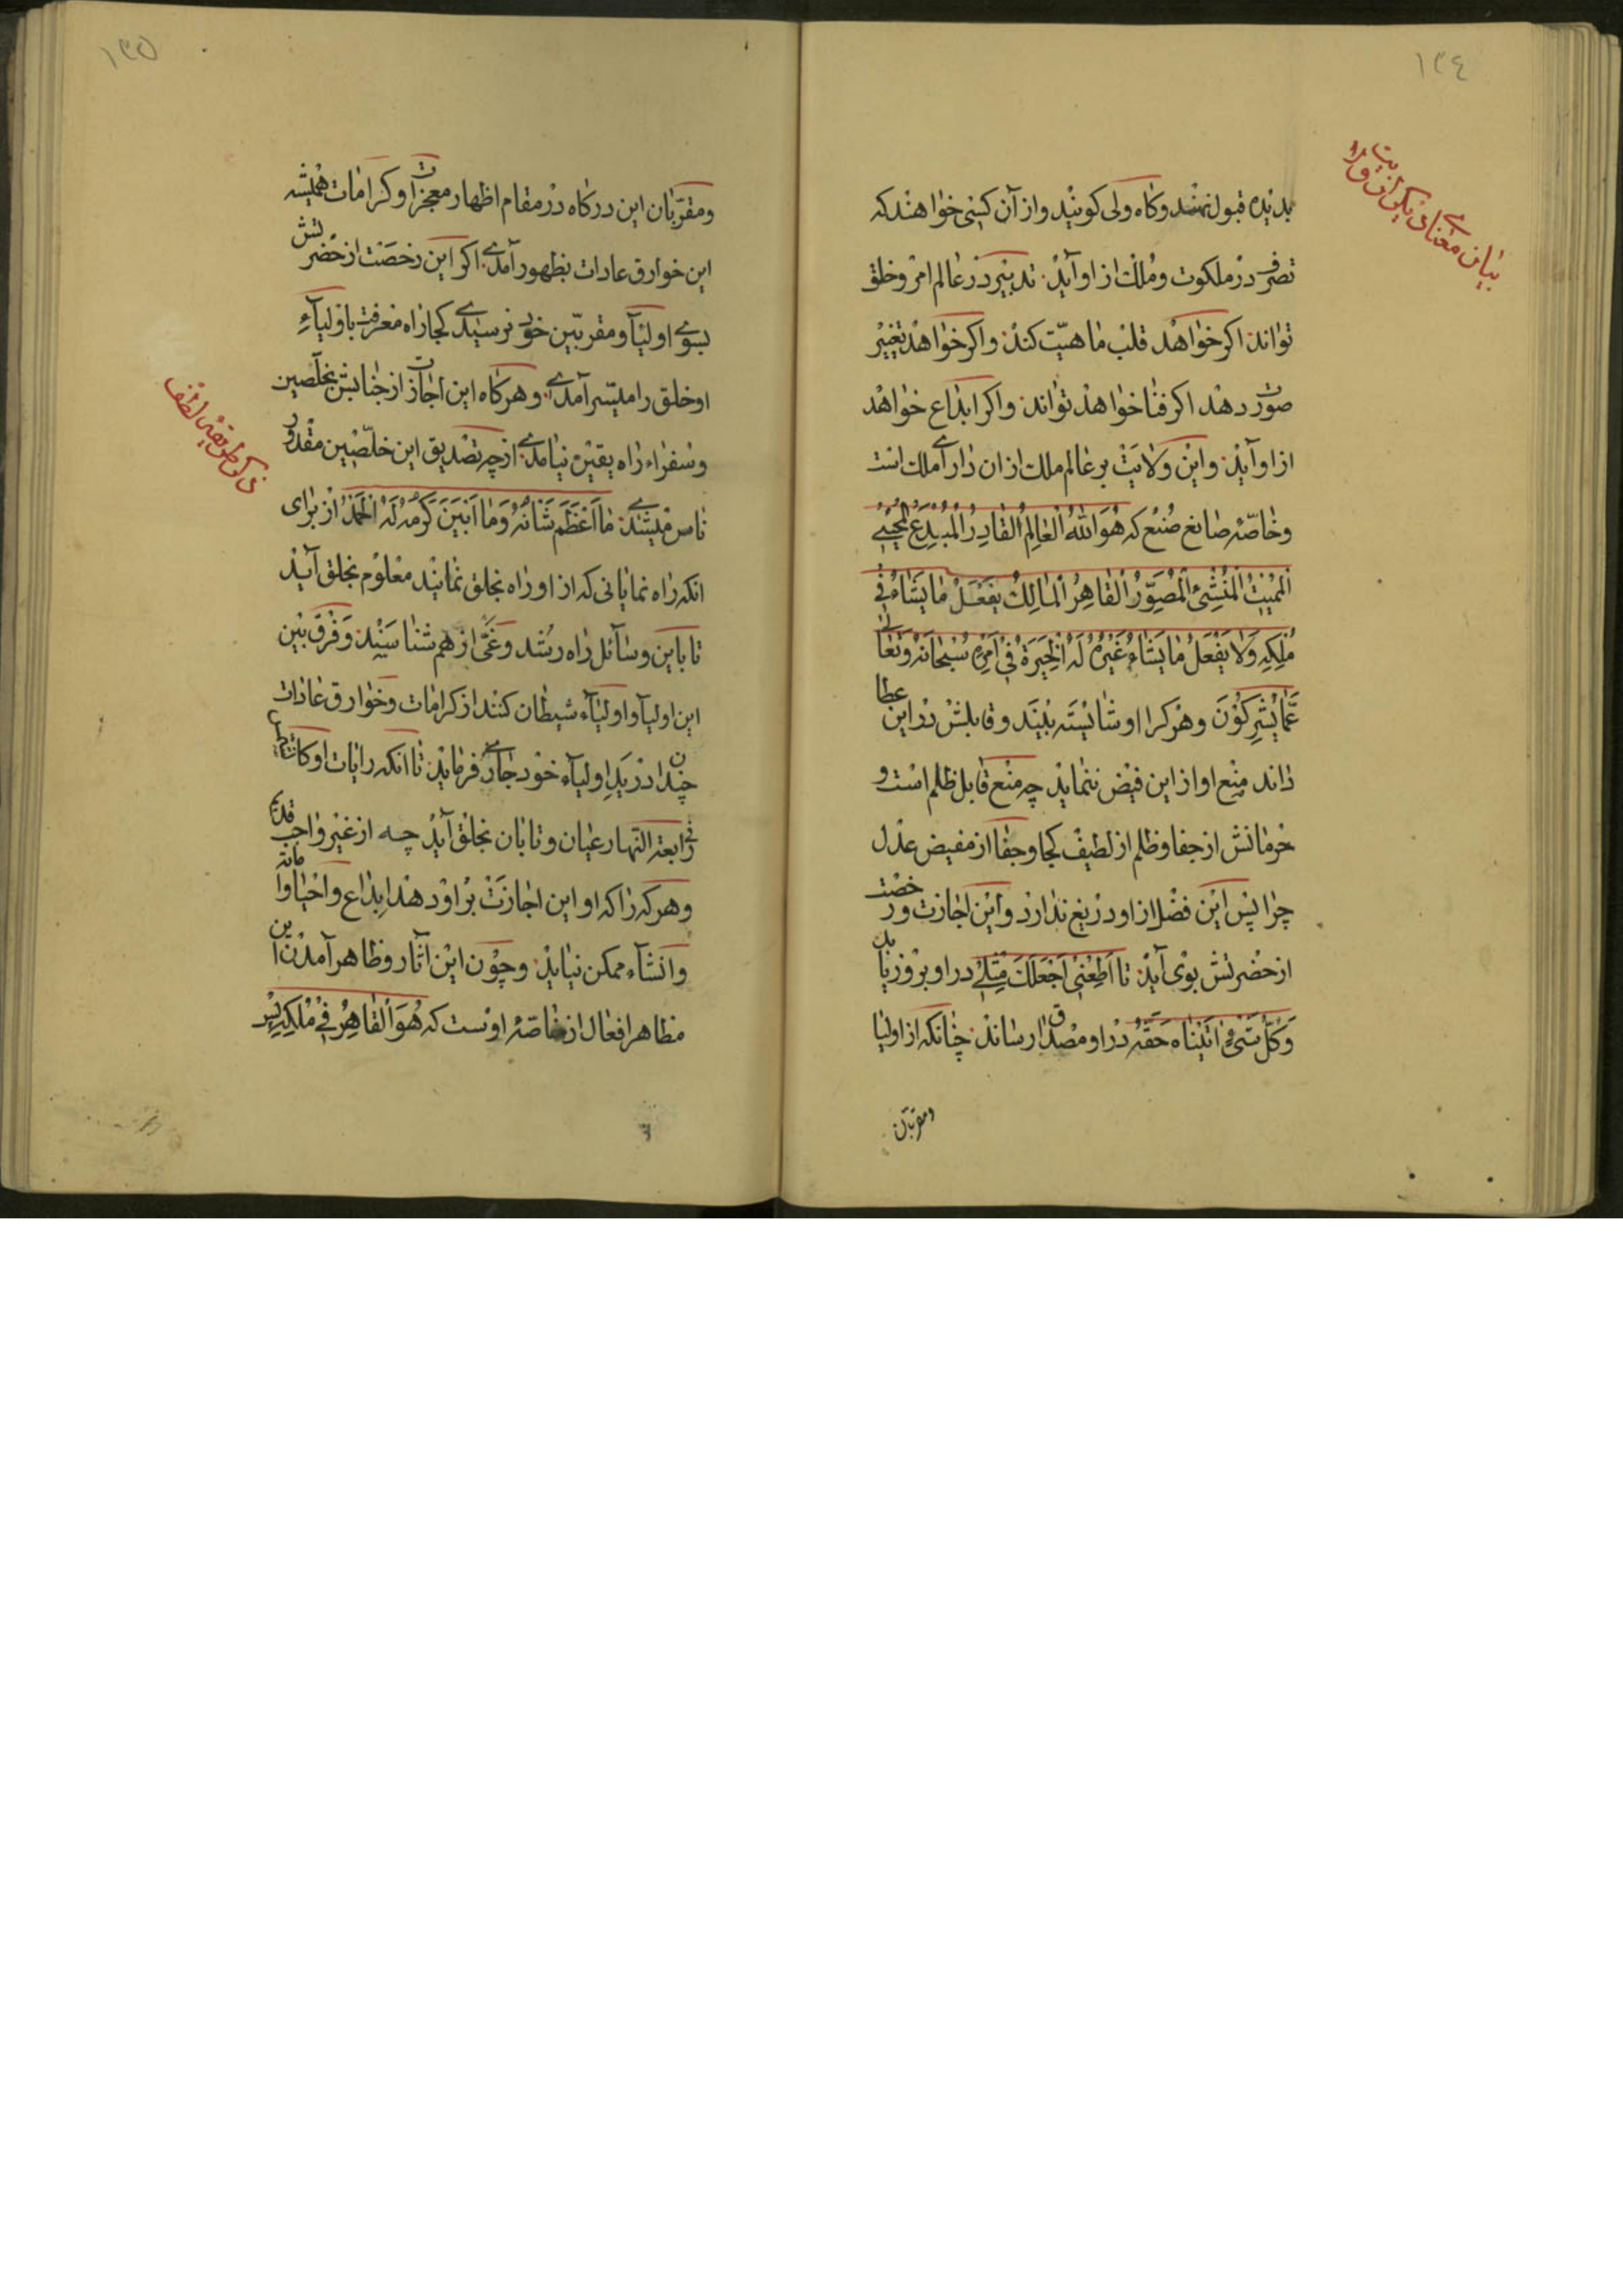 ١٣٤
بیان معنای دیگر از ولایت
بدیده قبول نهند وکاه ولی کویند واز آن کسی خواهند که
تصرف در ملکوت وملک از او آید تدبیر در عالم امر وخلق
تواند اکر خواهد قلب ماهیّت کند واکر خواهد تغییر
صورت دهد اکر فنا خواهد تواند واکر ابداع خواهد
از او آید واین ولایت بر عالم ملک از ان دارای ملک است
وخاصّهٔ صانع صُنع که هُوَ اللهُ الْعٰالِمُ الْقٰادِرُ الْمُبْدِعُ الْمُحْیٖی
الْمُمیٖتُ الْمُنْشِئُ الْمُصَوِّرُ الْقٰاهِرُ الْمٰالِکُ یَفْعَلُ مٰا یَشٰاءُ فِی
مُلْکِهِ وَلٰا یَفْعَلُ مٰا یَشٰاءُ غَیْرُهُ لَهُ الْخِیَرَةُ فِی اَمْرِهِ سُبْحٰانَهُ وَتَعٰالٰی
عَمّٰا یُشْرِکُوُنَ وهر کرا او شایسته بیند وقابلش در این عطا
داند منع او از این فیض ننماید چه منع قابل ظلم است و
حرمانش از جفا وظلم از لطیف کجا وجفا از مفیض عدل
چرا پس این فضل از او دریغ ندارد واین اجازت ورخصت
از حضرتش بوی آید تا اَطِعْنٖی اَجْعَلْکَ مِثْلٖی در او بروز یابد
وَکُلَّ شَیْءٍ اٰتَیْنٰاهُ حَقَّهُ در او مصداق رساند چنانکه از اولیا
ومقربان
١٣٥
ومقرّبان این درکاه در مقام اظهار معجزات وکرامات همیشه
این خوارق عادات بظهور آمدی اکر این رخصت از حضرتش
بسوی اولیآ ومقربّین خود نرسیدی کجا راه معرفت باولیآءِ
او خلق را میسّر آمدی وهرکاه این اجازت از جنابش بخلّصین
وسفراء راه یقین نیامدی از چه تصدیق این خلّصین مقدور
ناس میشدی مٰا اَعْظَمَ شَانَهُ وَمٰا اَبْیَنَ کَرَمَهُ لَهُ الْحَمْدُ از برای
انکه راه نمایانی که از او راه بخلق نمایند معلوم بخلق آید
تا باین وسآئل راه رشد وغیّ از هم شناسیند وفرق بین
این اولیآ واولیآء شیطان کنند از کرامات وخوارق عادات
چندان در یَدِ اولیآء خود جاری فرماید تا انکه رایات او کالشّمس
فی رابعة النّهار عیان وتابان بخلق آید چه از غیر واجب قدرت
وهر که را که او این اجازت بر او دهد ابداع واحیا واماته
وانشآء ممکن نیاید وچون این اثار وظاهر آمدن این
مظاهر افعال از خاصّهٔ اوست که هُوَ الْقٰاهِرُ فِی مُلْکِهِ لَیْسَ